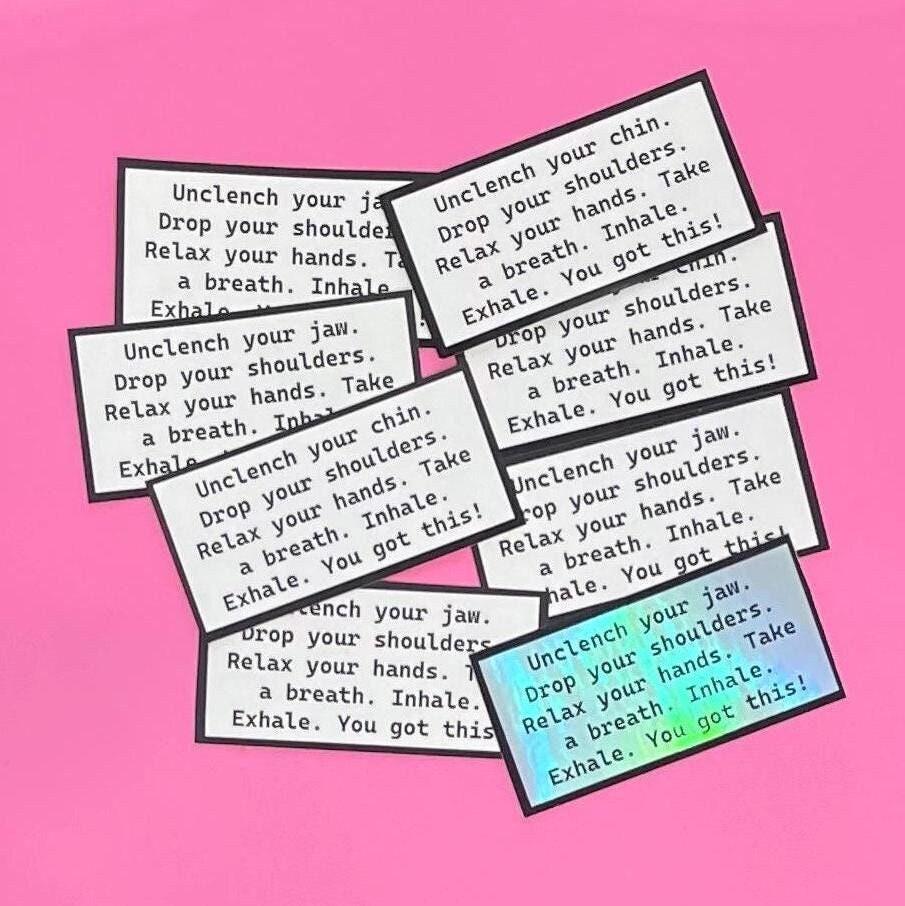 Unclench your
Drop your
Relax your hands.
a breath. Inhale
Exhale.
Unclench your chin.
Drop your shoulders.
Relax your hands. Take
a breath. Inhale.
Exhale. You got this!
Unclench your jaw.
Drop your shoulders.
Relax your hands. Take
a breath.
Exhale
chin.
Drop your shoulders.
Relax your hands. Take
a breath. Inhale.
Exhale. You got this!
Unclench your chin.
Drop your shoulders.
Relax your hands. Take
a breath. Inhale.
Exhale. You got this!
Unclench your jaw.
your shoulders.
Relax your hands. Take
a breath. Inhale.
You got this!
your jaw.
Drop your shoulders
Relax your hands.
a breath. Inhale.
Exhale. You got this
Unclench your jaw.
Drop your shoulders.
Relax your hands. Take
a breath. Inhale.
Exhale. You got this!